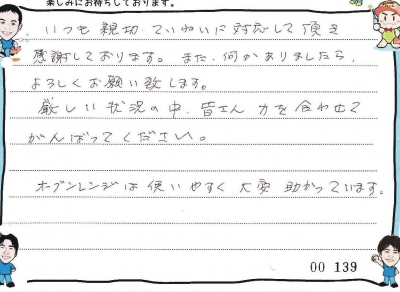 楽しみにお待ちしております。
いつも親切、ていねいに対応して頂き
感謝しております。また、何かありましたら、
よろしくお願い致します。
厳しい状況の中、皆さん力を合わせて
がんばってください。
オーブンレンジは使いやすく大変助かっています。
00 139